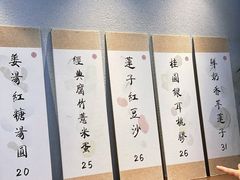 薑湯紅糖湯圓
20
經典腐竹薏米蛋
25
蓮子紅豆沙
26
桂圓銀耳桃膠
26
鮮奶香芋蓮子
31